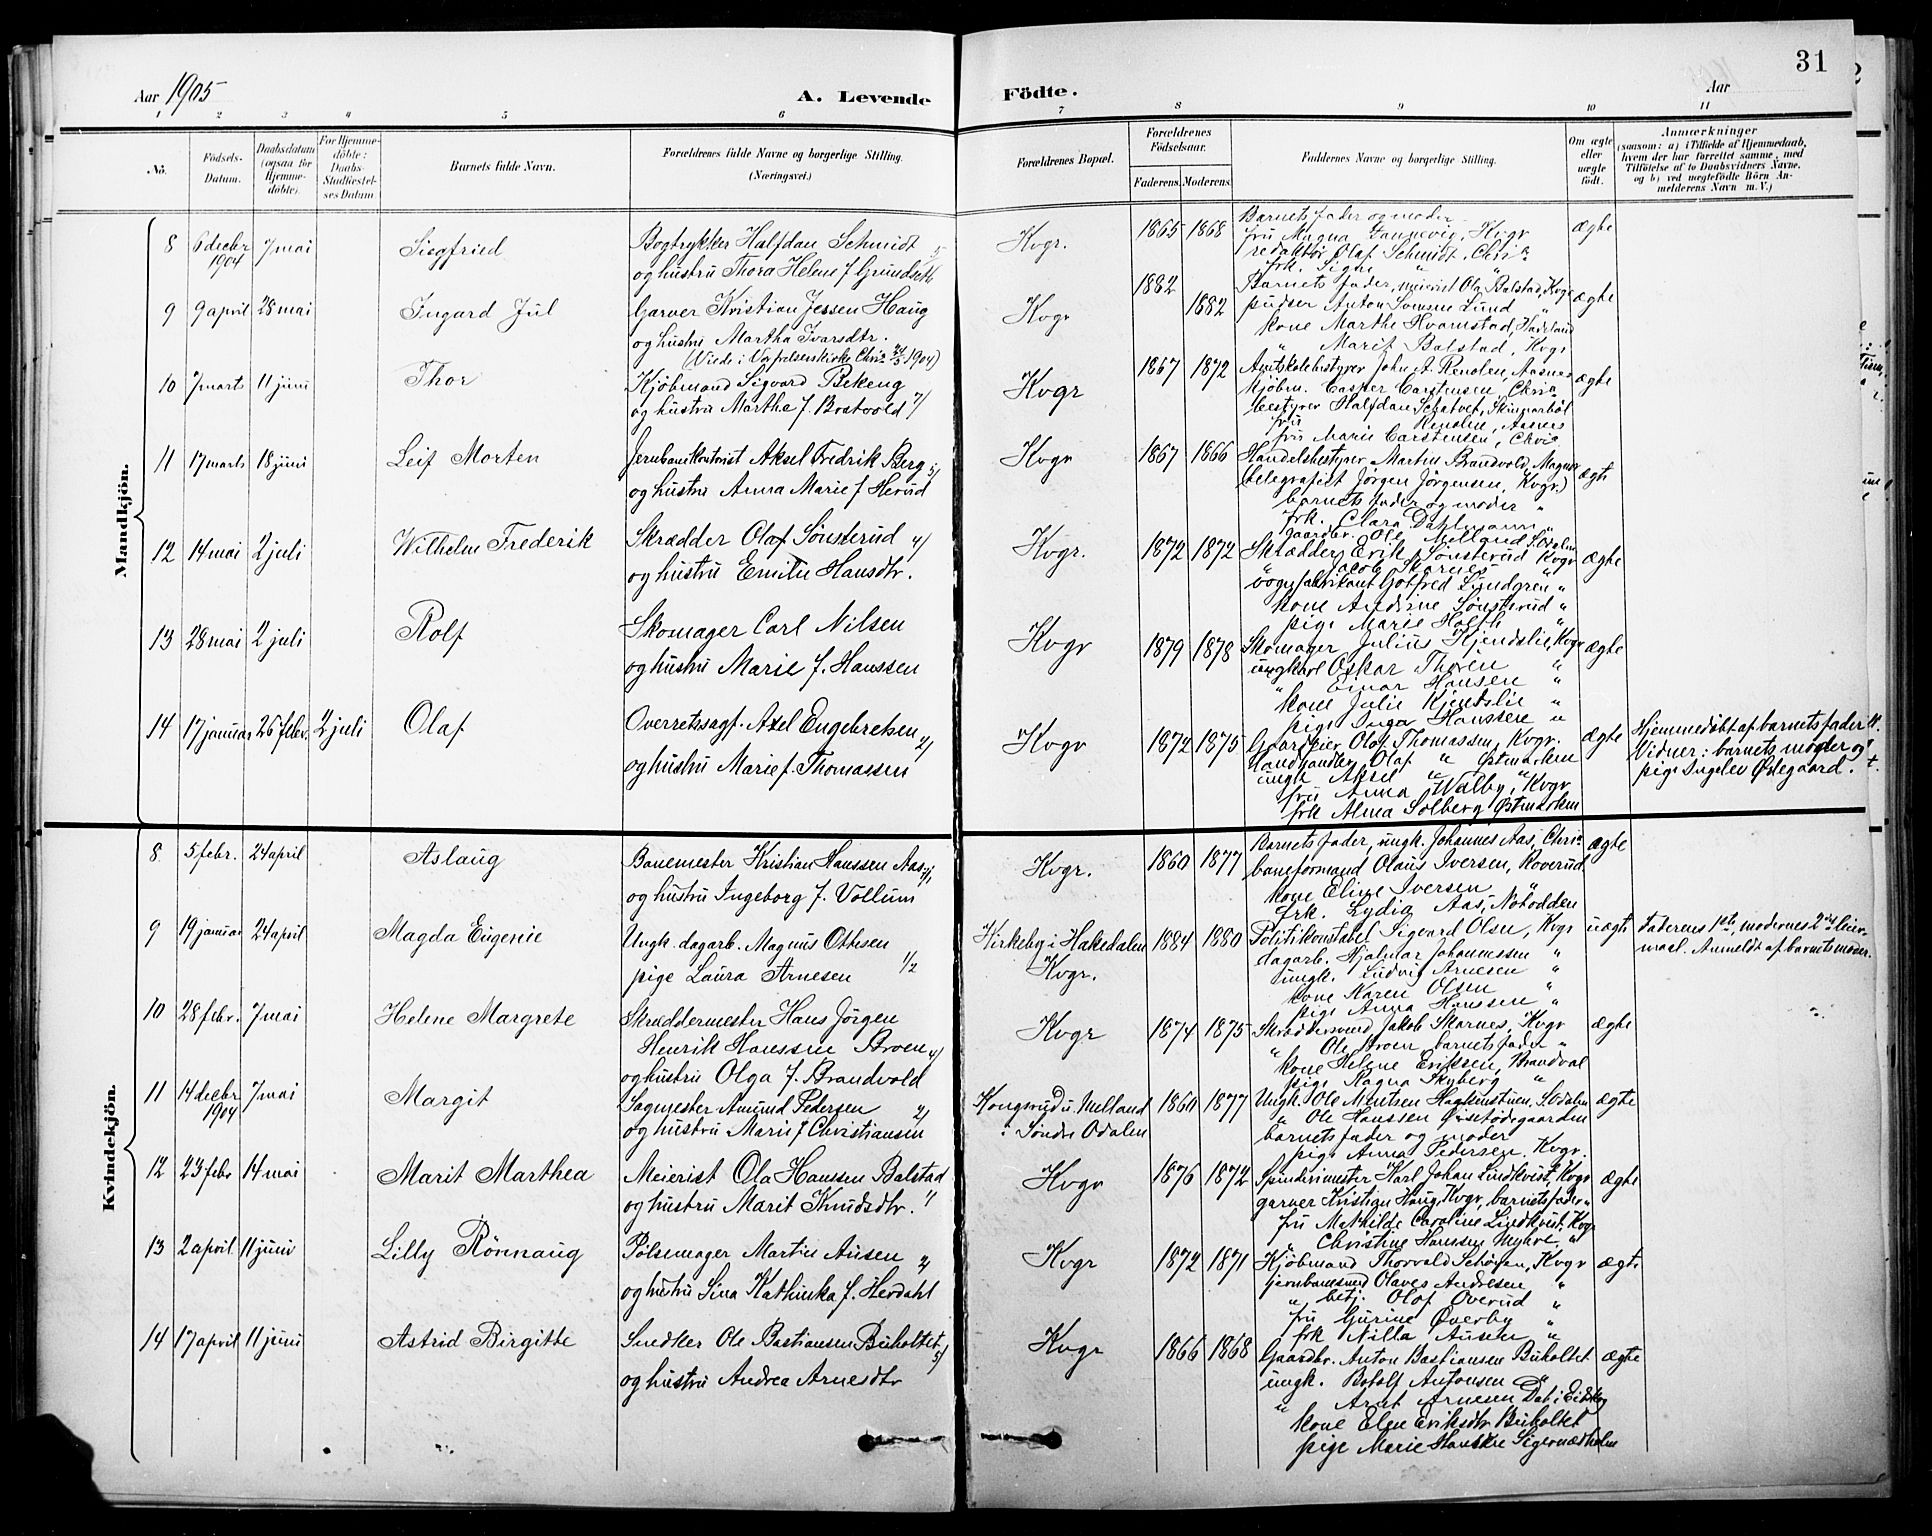 31
Aar 1905
A. Levende
Födte.
Aar
1 2 3 4 5 6 7 8 9 10 11
No.
Födsels-Datum.
Daabsdatum (ogsaa for Hjemmedöbte).
For Hjemmedöbte: Daabs-Stadfæstelses Datum
Barnets fulde Navn.
Forældrenes fulde Navne og borgerlige Stilling.
(Næringsvei.)
Forældrenes Bopæl.
Forældrenes Födselsaar.
Faderens. Moderens.
Faddernes Navne og borgerlige Stilling.
Om ægte eller uægte født.
Anmærkninger
(saasom: a) i Tilfælde af Hjemmedaab, hvem der har forrettet samme, med Tilföielse af to Daabsvidners Navne, og b) ved uægtefödte Börn Anmelderens Navn m. V.)
Mandkjön.
8 6 decbr 1904 7 mai Siegfried
Bogtrykker Halfdan Schmidt
og hustru Thora Helene f. Grundseth
Kvgr. 1865 1868
Barnets fader og moder
fru Magna Fannevig, Kvgr
redaktør Olaf Schmidt, Chria
frk. Signe " "
ægte
9 9 april 28 mai Ingard Jul
Garver Kristian Jessen Haug
og hustru Martha Ivarsdtr.
(Viede i Vor frelsers kirke Chria 1904)
Kvgr 1882 1882
Barnets fader, meierist Ola Balstad, Kvgr
pudser Anton Lund
kone Marthe Kvamstad, Hadeland
" Marit Balstad, Kvgr
ægte
10 7 marts 11 juni Thor
Kjöbmand Sigvard Bekeng
og hustru Marthe f. Bratvold 7/
Kvgr 1867 1872
Amtskolebestyrer John A. Renolen, Aasnes
Kjöbm. Casper Carstensen, Chria
bestyrer Halfdan Schatvet, Skinnarböl
fru Renolen, Aasnes
fru Marie Carstensen, Chria
ægte
11 17 marts 18 juni Leif Morten
Jernbanekontorist Aksel Fredrik Berg 5/
og hustru Anna Marie f. Herud
Kvgr 1867 1866
Handelsbestyrer Martin Brandvold, Magnor
(telegrafist Jørgen Jørgensen, Kvgr.)
barnets fader og moder "
frk. Clara Dahlmann "
gaardbr. Ole Melland S. Odalen
ægte
12 14 mai 2 juli Wilhelm Frederik
Skrædder Olaf Sönsterud 4/
og hustru Emilie Hansdtr.
Kvgr. 1872 1872
Skrædder Erik Sønsterud Kvgr
" Jacob Skarnes "
vognfabrikant Gotfred Lundgren "
kone Andrine Sønsterud "
pige Marie Holth "
ægte
13 28 mai 2 juli Rolf
Skomager Carl Nilsen
og hustru Marie f. Hanssen
Kvgr 1879 1878
Skomager Julius Kjendslie, Kvgr
ungkarl Oskar Thoren "
" Einar Hansen "
kone Julie Kjendslie "
pige Inga Hanssen "
ægte
14 17 januar 26 febr. 2 juli Olaf
Overretssagf. Axel Engebretsen 2/
og hustru Marie f. Thomassen
Kvgr 1872 1875
Gaardeier Olof Thomassen, Kvgr.
landhandler Olaf " Østmarken
ungk Aksel " "
fru Anna Walby, Kvgr
frk Alma Solberg Østmarken
ægte
Hjemmedöbt af barnets fader
Vidner: barnets moder og
pige Ingelev Ødegaard.
Kvindekjön.
8 5 febr. 24 april Aslaug
Banemester Kristian Hanssen Aas
og hustru Ingeborg f. Vollum
Kvgr. 1860 1877
Barnets fader, ungk. Johannes Aas, Chria
baneformand Olaus Iversen, Roverud
kone Eline Iversen
frk. Lydia Aas, Notodden
ægte
9 19 januar 24 april Magda Eugenie
Ungk. dagarb. Magnus Ottesen
pige Laura Arnesen 1/2
Kirkeby i Hakedalen
Kvgr. 1884 1880
Politikonstabel Sigvard Olsen, Kvgr
dagarb. Hjalmar Johannessen "
ungk. Ludvig Arnesen "
kone Karen Olsen "
pige Anna Hanssen "
uægte
Faderens 1ste, moderens 2det leier-
maal. Anmeldt af barnets moder.
10 28 febr. 7 mai Helene Margrete
Skræddermester Hans Jörgen
Henrik Hanssen Broen 4/
og hustru Olga f. Brandvold
Kvgr 1874 1875
Skræddersvend Jakob Skarnes, Kvgr
" Ole Broen, barnets fader "
kone Helene Eriksen, Brandval
pige Ragna Skyberg "
ægte
11 14 decbr 1904 7 mai Margit
Sagmester Amund Pedersen 2/
og hustru Marie f Christiansen
Kongsrud u. Melland
i Söndre Odalen
1860 1877
Ungk. Ole Mortsen Haakenstuen, S. Odalen
" Ole Hanssen Ørsetödegaarden
barnets fader og moder
pige Anna Pedersen, Kvgr.
ægte
12 23 febr 14 mai Marit Marthea
Meierist Ola Hanssen Balstad
og hustru Marit Knudsdtr. 1/
Kvgr 1876 1872
Spinderimester Karl Johan Lindkvist, Kvgr
garver Kristian Haug, Kvgr, barnets fader "
fru Mathilde Caroline Lindkvist, Kvgr
" Christine Hanssen Myhre "
ægte
13 2 april 11 juni Lilly Rönnaug
Pölsemager Martin Ausen 2/
og hustru Lina Kathinka f. Herdahl
Kvgr 1872 1871
Kjöbmand Thorvald Schøyen, Kvgr
jernbanemand Olaves Andresen "
" betj. Olof Overud "
fru Gurine Øverby "
frk Nilla Ausen "
ægte
14 17 april 11 juni Astrid Birgitte
Snedker Ole Bastiansen Buholtet 5/
og hustru Andrea Arnesdtr
Kvgr 1866 1868
Gaardbr. Anton Bastiansen Buholtet
ungk. Botolf Antonsen "
" Arnt Arnesen Dal i Eidskog
kone Elen Eriksdtr Buholtet
pige Marie Hanssen Sigernæsholm
ægte